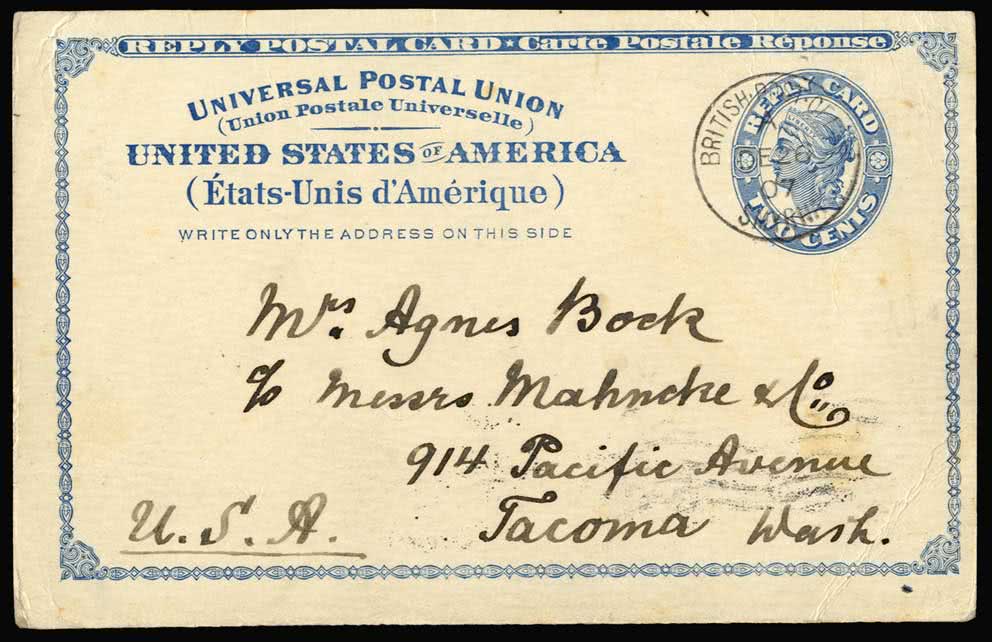 REPLY POSTAL CARD ★ Carte Postale Réponse
UNIVERSAL POSTAL UNION
(Union Postale Universelle)
UNITED STATES OF AMERICA
(États-Unis d'Amérique)
WRITE ONLY THE ADDRESS ON THIS SIDE
REPLY CARD
TWO CENTS
BRITISH
26
07
Mrs. Agnes Bock
c/o Messrs Mahncke & Co.
914 Pacific Avenue
Tacoma Wash.
U.S.A.